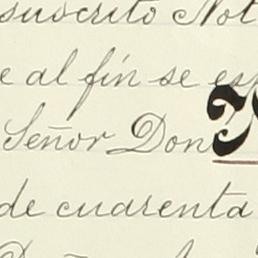 suscrito Not
e al fín se es
Señor Don
de cuarenta